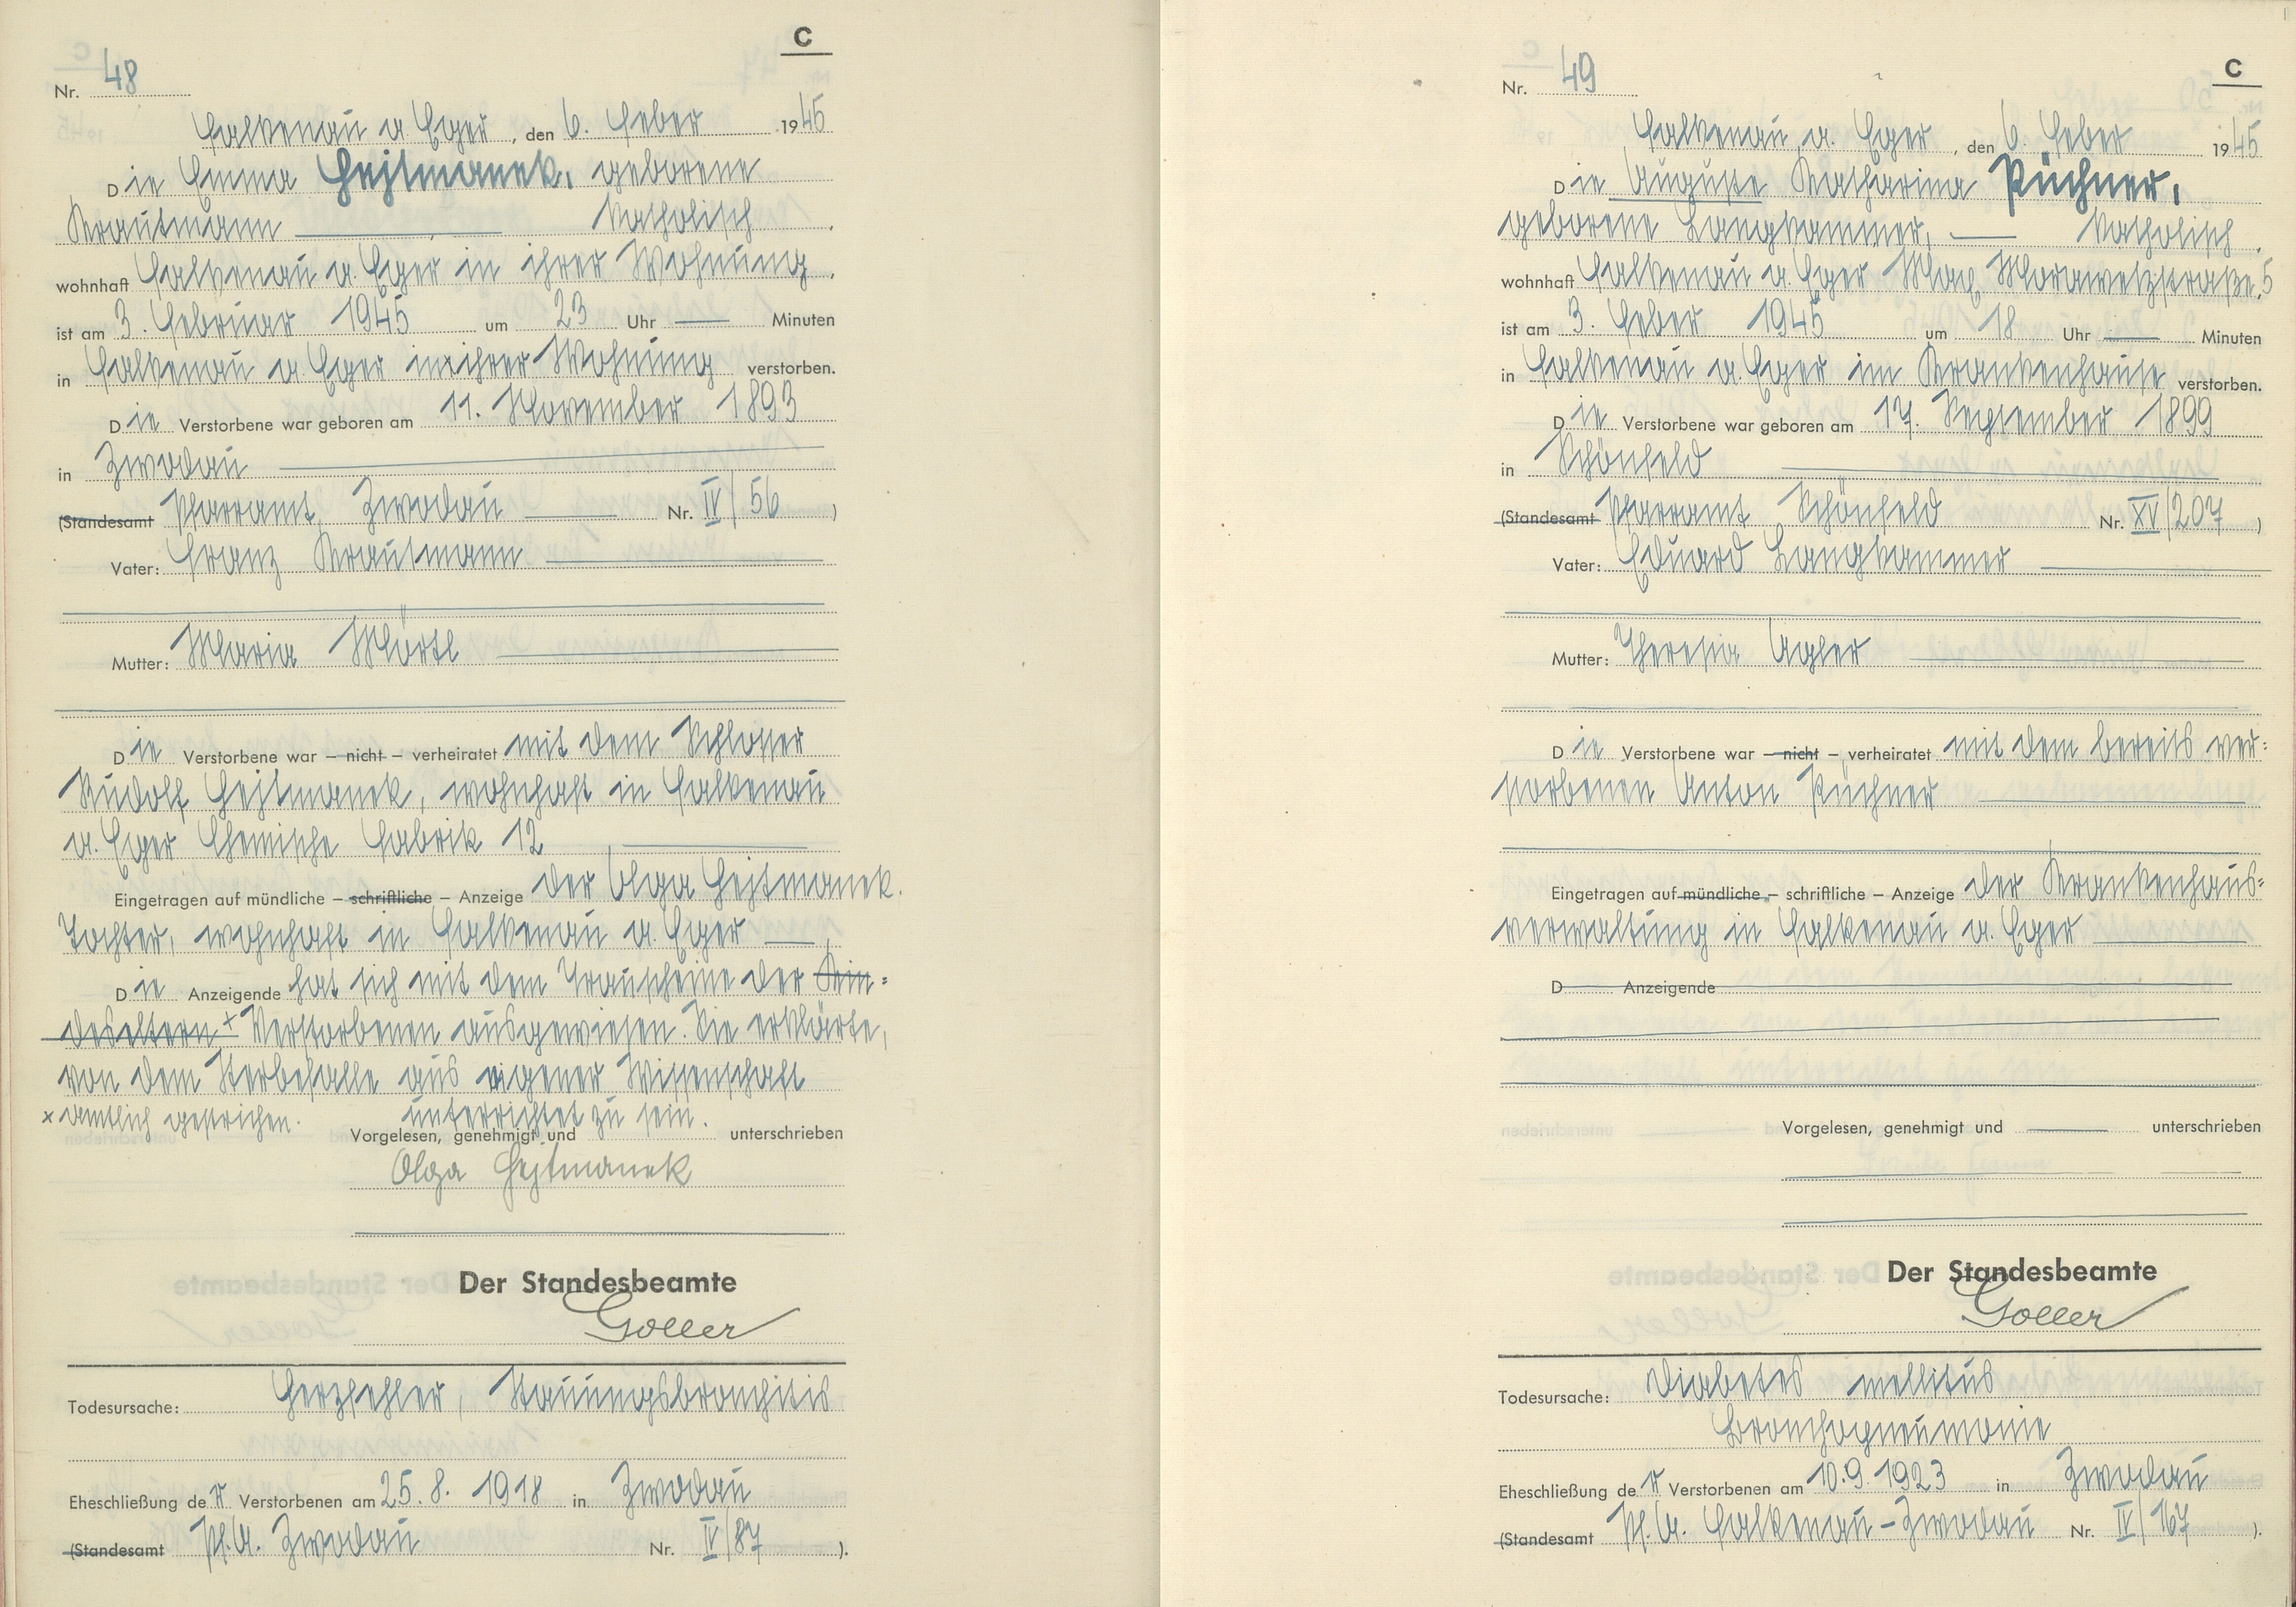 C
Nr. 48
Falkenau a. Eger, den 6. Feber 1945
Die Emma Hejtmanek, geborene
Krautmann — katholisch,
wohnhaft Falkenau a. Eger in ihrer Wohnung,
ist am 3. Februar 1945 um 23 Uhr — Minuten
in Falkenau a. Eger in ihrer Wohnung verstorben.
Die Verstorbene war geboren am 11. November 1893
in Zwodau
(Standesamt Pfarramt, Zwodau — Nr. IV/56)
Vater: Franz Krautmann
Mutter: Maria Mörtl
Die Verstorbene war – nicht – verheiratet mit dem Schlosser
Rudolf Hejtmanek, wohnhaft in Falkenau
a. Eger Chemische Fabrik 12
Eingetragen auf mündliche – schriftliche – Anzeige der Olga Hejtmanek.
Tochter, wohnhaft in Falkenau a. Eger —,
Die Anzeigende hat sich mit dem Trauscheine der
Verstorbenen ausgewiesen. Sie erklärte,
von dem Sterbefalle aus eigener Wissenschaft
x amtlich gestrichen. unterrichtet zu sein.
Vorgelesen, genehmigt und unterschrieben
Olga Hejtmanek
Der Standesbeamte
Goller
Todesursache: Herzfehler, Stauungsbronchitis
Eheschließung der Verstorbenen am 25. 8. 1918 in Zwodau
(Standesamt Pf. A. Zwodau Nr. IV/87).
C
Nr. 49
Falkenau a. Eger, den 6. Feber 1945
Die Auguste Katharina Püchner,
geborene Langkammer, — katholisch,
wohnhaft Falkenau a. Eger Max Morawetzstraße, 5
ist am 3. Feber 1945 um 18 Uhr — Minuten
in Falkenau a. Eger im Krankenhause verstorben.
Die Verstorbene war geboren am 17. September 1899
in Schönfeld
(Standesamt Pfarramt Schönfeld Nr. XV/207)
Vater: Eduard Langkammer
Mutter: Theresia Agler
Die Verstorbene war – nicht – verheiratet mit dem bereits ver=
storbenen Anton Püchner
Eingetragen auf mündliche – schriftliche – Anzeige der Krankenhaus=
verwaltung in Falkenau a. Eger
D Anzeigende
Vorgelesen, genehmigt und — unterschrieben
Der Standesbeamte
Goller
Todesursache: Diabetes mellitus
Bronchopneumonie
Eheschließung der Verstorbenen am 10. 9. 1923 in Zwodau
(Standesamt Pf. A. Falkenau – Zwodau Nr. IV/167).